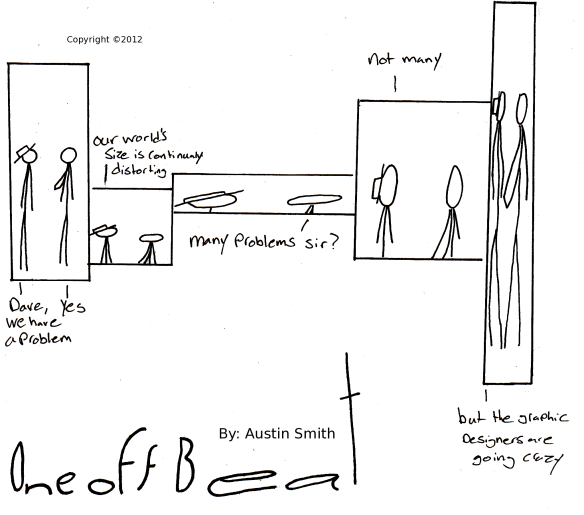 Copyright ©2012
Dave,
we have
a Problem
Yes
our world's
Size is continualy
distorting
many Problems sir?
Not many
but the graphic
Designers are
going crazy
By: Austin Smith
One off Beat